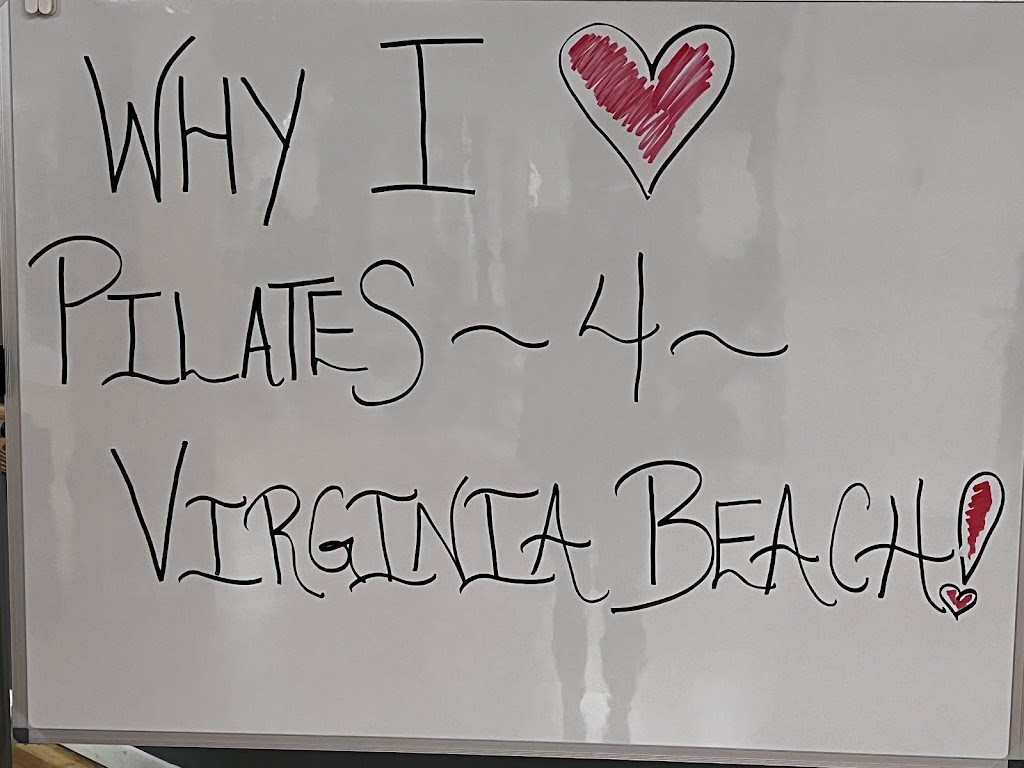 WHY I ❤
PILATES ~ 4 ~
VIRGINIA BEACH!